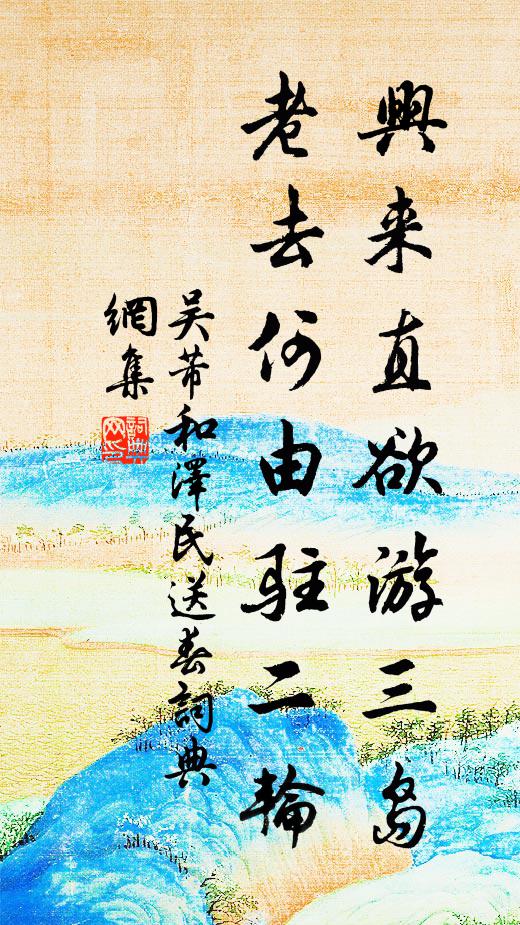 興来直欲游三島
老去何由駐二輪
吴芾和澤民送春詞典
網集
詞典网印